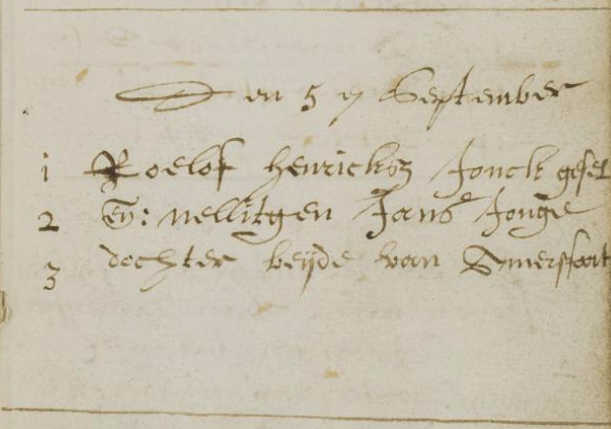 Den 5 en September
1 Roelof henricksz Jonck gesel
2 En: nellitgen Jans Jonge
3 dochter beijde van Amersfoort